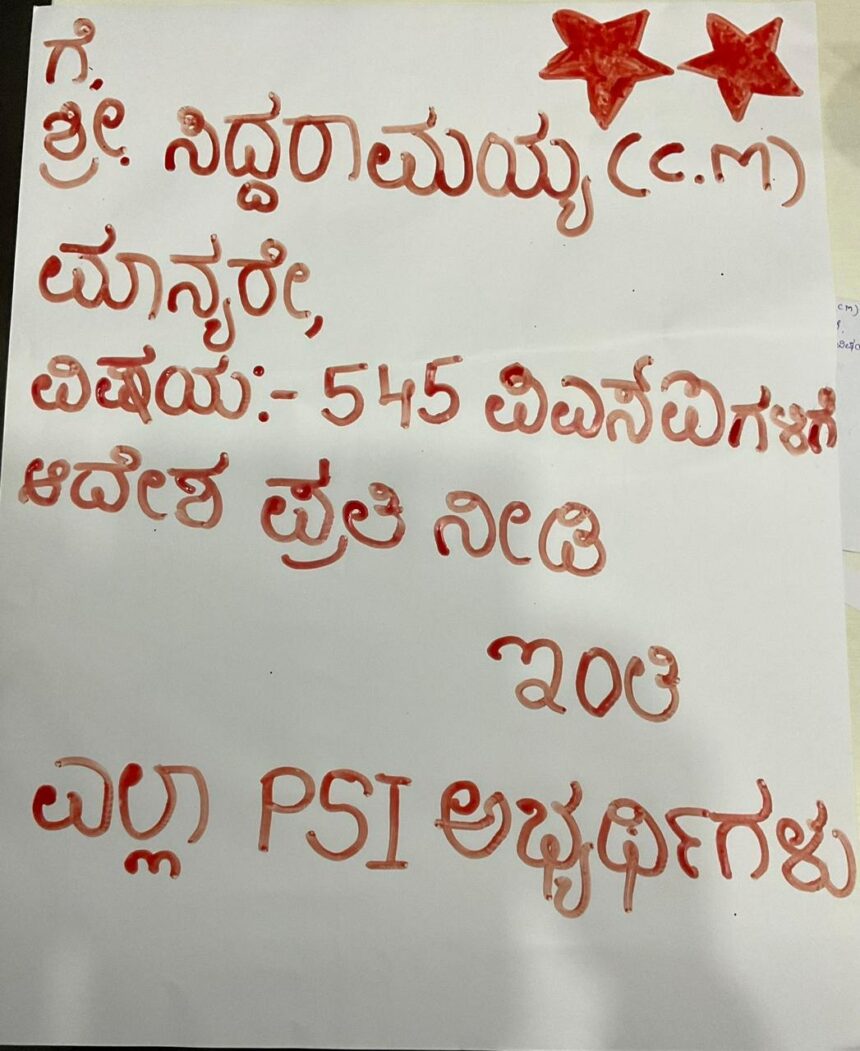 ಗೆ,
ಶ್ರೀ. ಸಿದ್ದರಾಮಯ್ಯ (C.M)
ಮಾನ್ಯರೇ,
ವಿಷಯ:- 545 ಪಿಎಸ್ಐಗಳಿಗೆ
ಆದೇಶ ಪ್ರತಿ ನೀಡಿ
ಇಂತಿ
ಎಲ್ಲಾ PSI ಅಭ್ಯರ್ಥಿಗಳು
CM)